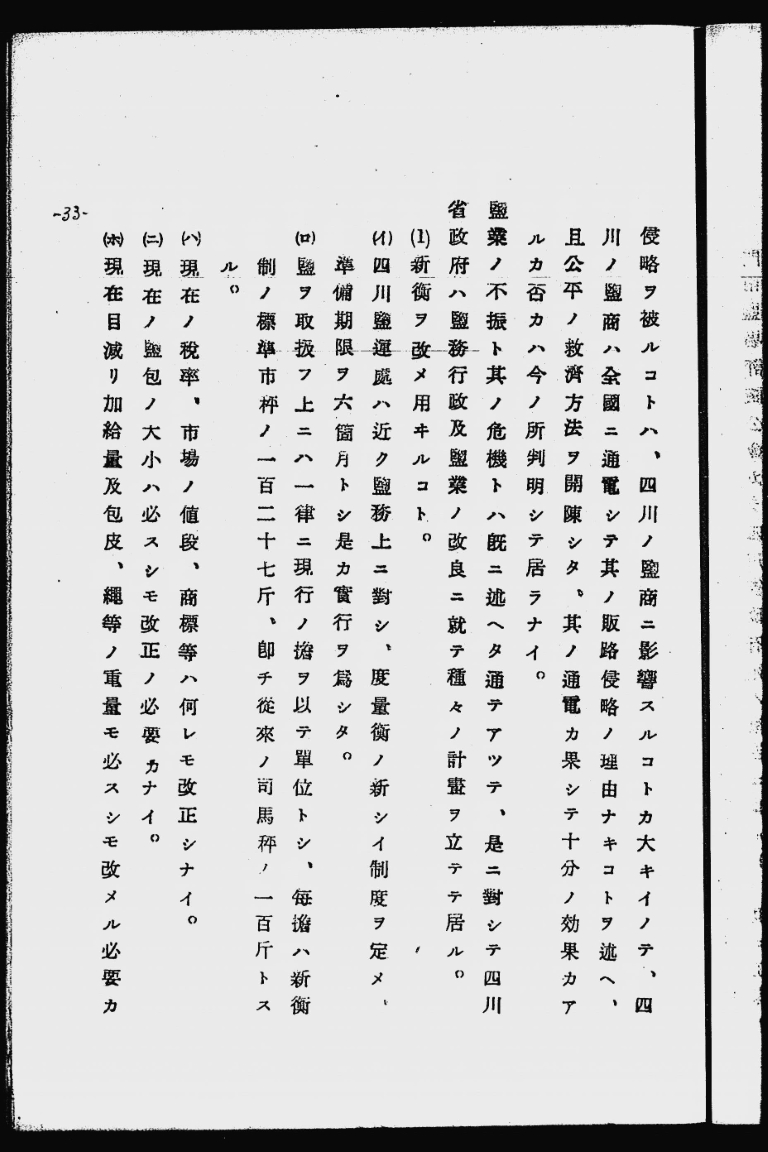 侵略ヲ被ルコトハ、四川ノ鹽商ニ影響スルコトカ大キイノテ、四
川ノ鹽商ハ全國ニ通電シテ其ノ販路侵略ノ理由ナキコトヲ述ヘ、
且公平ノ救濟方法ヲ開陳シタ、其ノ通電カ果シテ十分ノ効果カア
ルカ否カハ今ノ所判明シテ居ラナイ。
鹽業ノ不振ト其ノ危機トハ既ニ述ヘタ通テアツテ、是ニ對シテ四川
省政府ハ鹽務行政及鹽業ノ改良ニ就テ種々ノ計畫ヲ立テテ居ル。
(1)新衡ヲ改メ用ヰルコト。
(イ)四川鹽運處ハ近ク鹽務上ニ對シ、度量衡ノ新シイ制度ヲ定メ、
準備期限ヲ六箇月トシ是カ實行ヲ爲シタ。
(ロ)鹽ヲ取扱フ上ニハ一律ニ現行ノ擔ヲ以テ單位トシ、毎擔ハ新衡
制ノ標準市秤ノ一百二十七斤、卽チ從來ノ司馬秤ノ一百斤トス
ル。
(ハ)現在ノ稅率、市場ノ値段、商標等ハ何レモ改正シナイ。
(ニ)現在ノ鹽包ノ大小ハ必スシモ改正ノ必要カナイ。
(ホ)現在目減リ加給量及包皮、繩等ノ重量モ必スシモ改メル必要カ
-33-